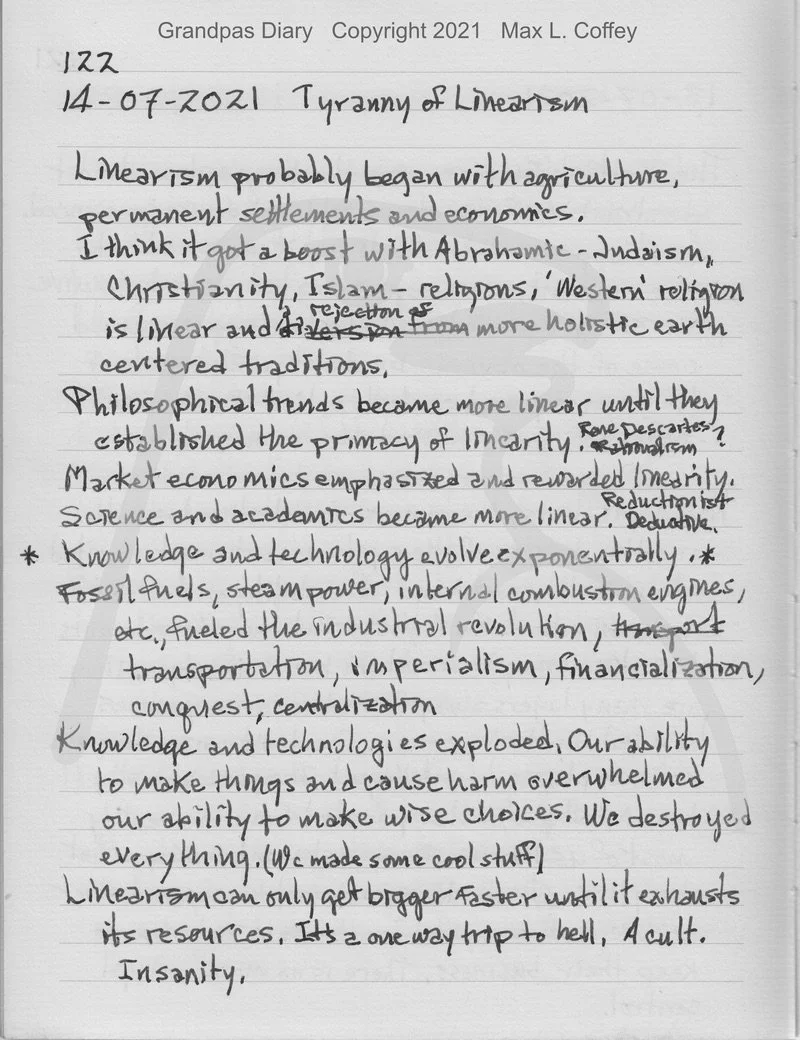 Grandpas Diary Copyright 2021 Max L. Coffey
122
14-07-2021 Tyranny of Linearism
Linearism probably began with agriculture,
permanent settlements and economics.
I think it got a boost with Abrahamic - Judaism,
Christianity, Islam - religions, 'Western' religion
a rejection of
is linear and diversion from more holistic earth
centered traditions.
Philosophical trends became more linear until they
established the primacy of linearity. Rene Descartes?
Rationalism
Market economics emphasized and rewarded linearity.
Reductionist
Science and academics became more linear. Deductive.
* Knowledge and technology evolve exponentially. *
Fossil fuels, steam power, internal combustion engines,
etc., fueled the industrial revolution, transport
transportation, imperialism, financialization,
conquest, centralization
Knowledge and technologies exploded. Our ability
to make things and cause harm overwhelmed
our ability to make wise choices. We destroyed
everything. (We made some cool stuff)
Linearism can only get bigger faster until it exhausts
its resources. It's a one way trip to hell. A cult.
Insanity.